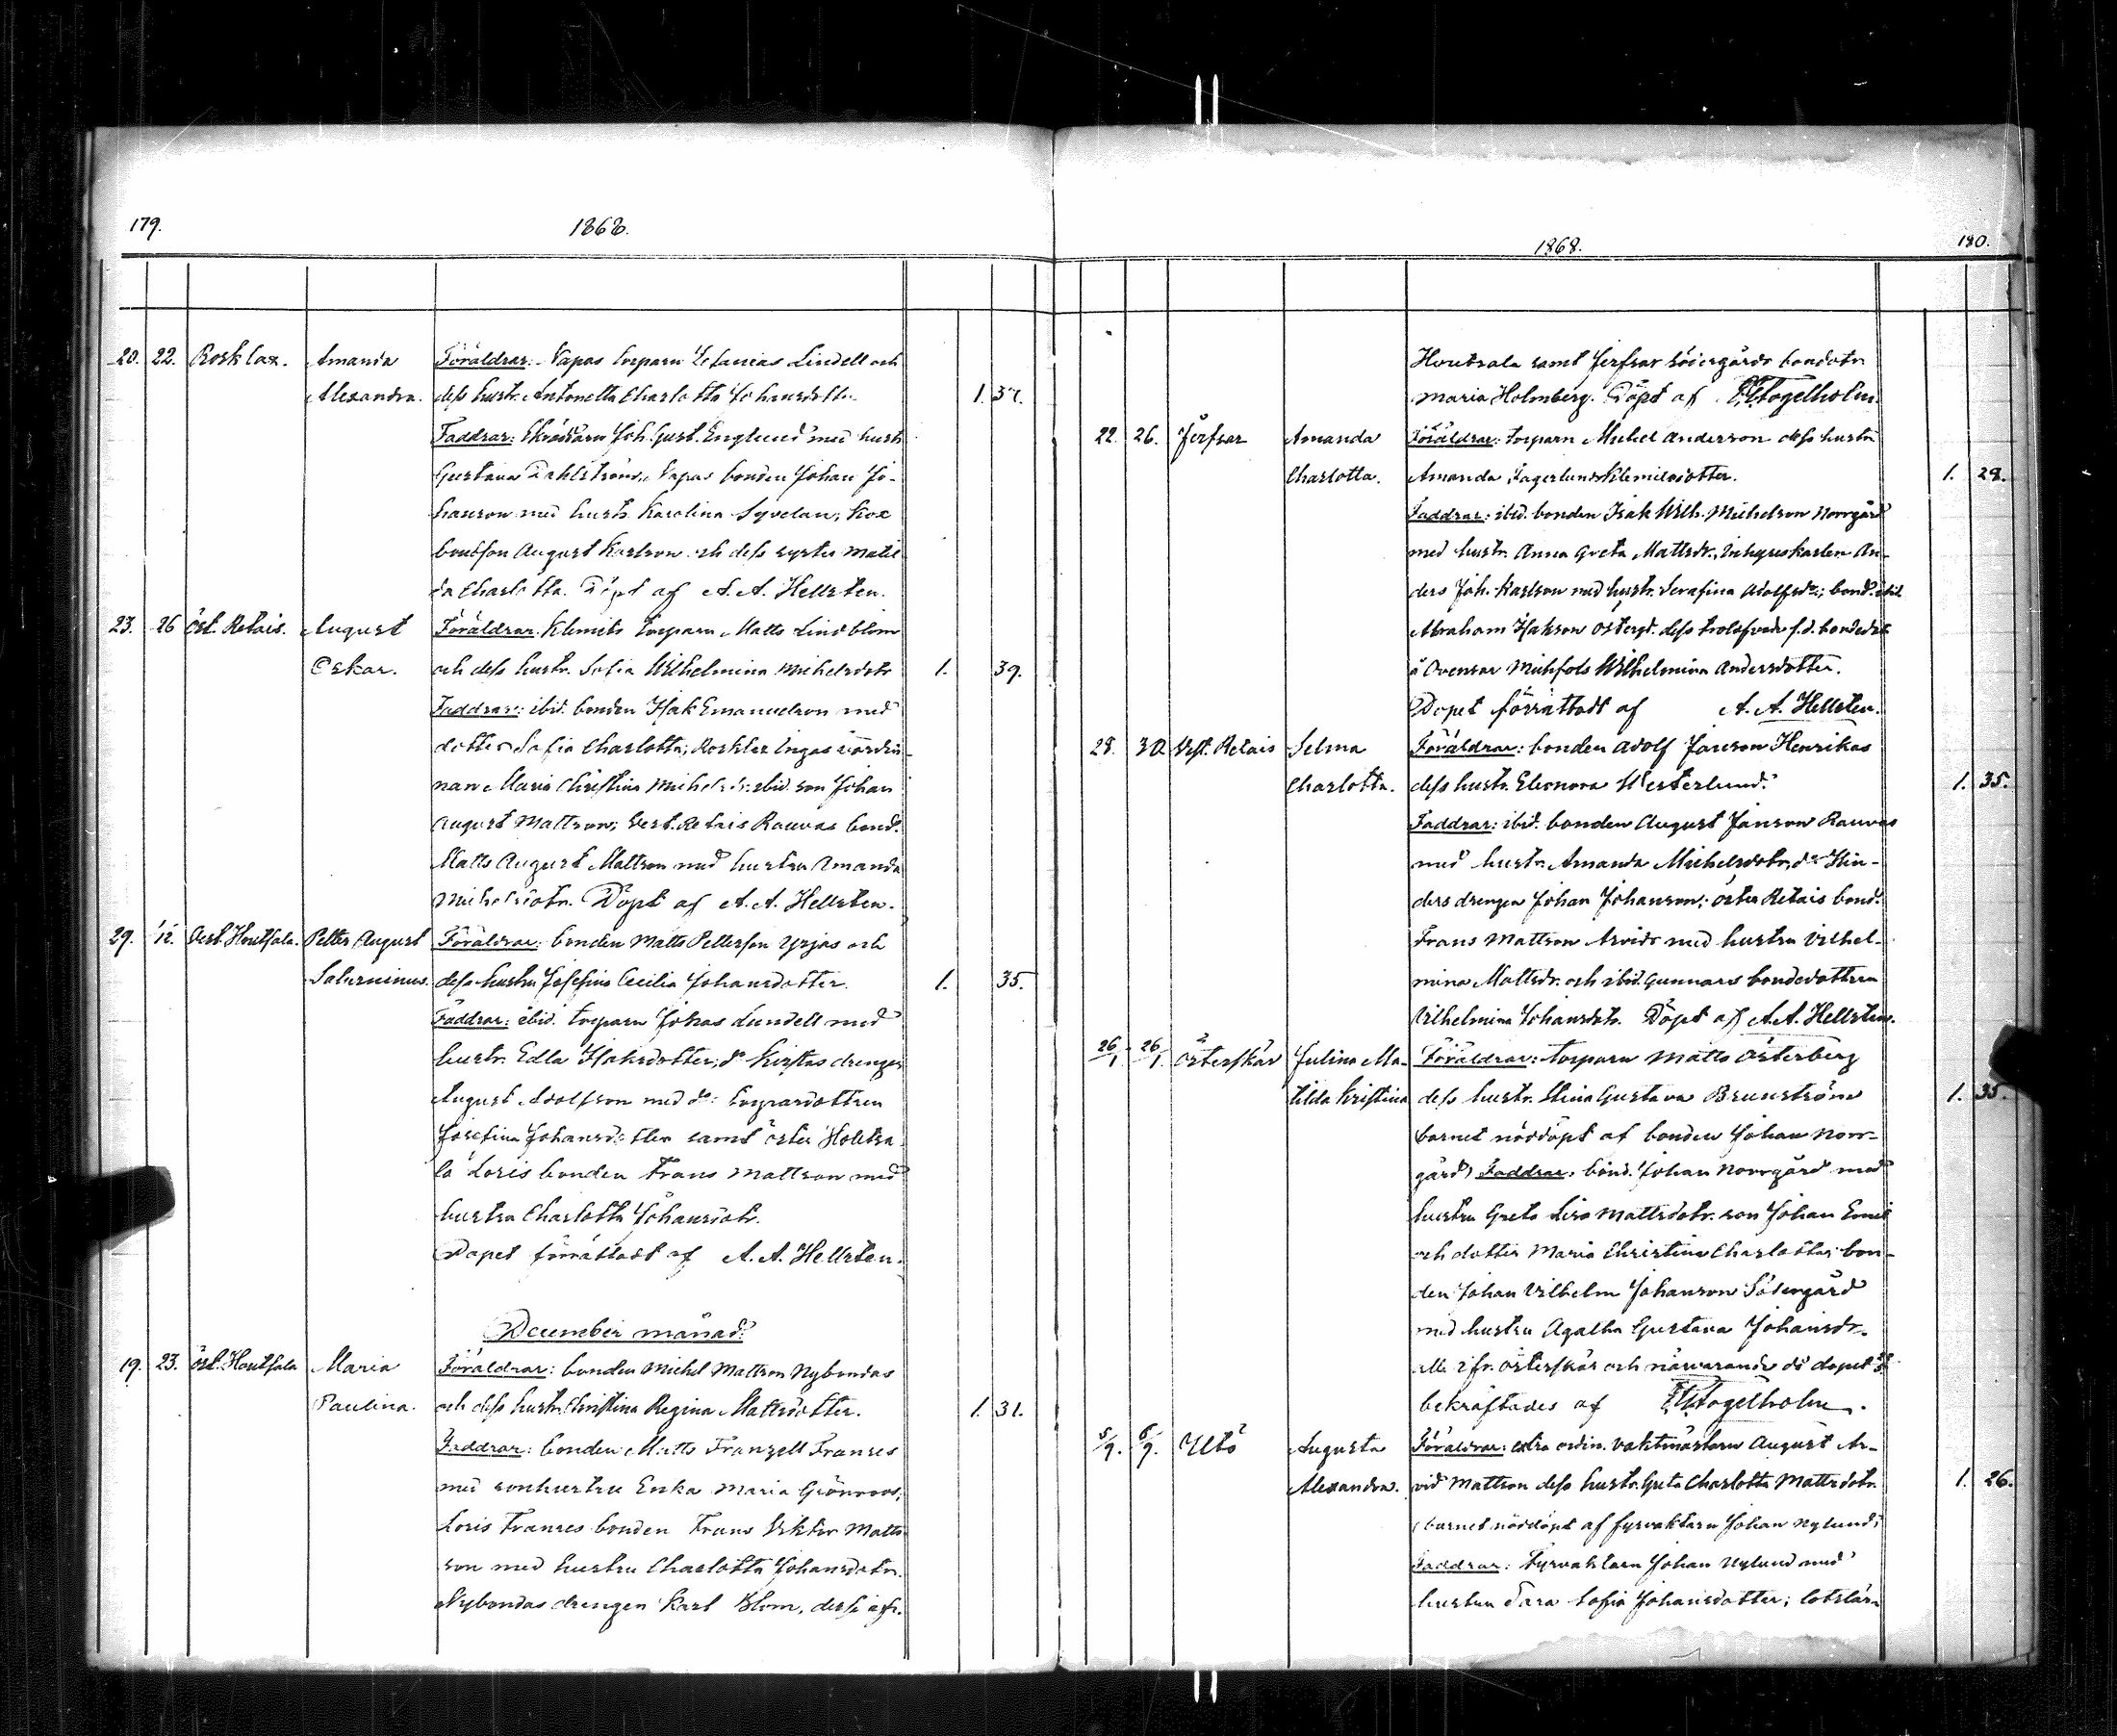 179.
1868.
20. 22. Rosklax. Amanda Föräldrar: Vapas torparn Zefanias Lindell och
Alexandra. dess hustr. Antonetta Charlotta Johansdotter. 1. 37.
Faddrar: Skräddarn Joh. Gust. Englund med hustr.
Gustava Dahlström, Vapas bonden Johan Jo-
hanson med hustr. Karolina
bondson August Karlson och dess syster Matil
da Charlotta. Döpt af A. A. Hellsten.
23. 26 Öst. Retais. August Föräldrar. Klemets torparn Matts Lindblom
Oskar. och dess hustr. Sofia Wilhelmina Michelsdotr 1. 39.
Faddrar: ibid. bonden Isak Emanuelson med
dotter Sofia Charlotta; Rosklax Ingas värdin-
nan Maria Christina ibid. son Johan
August Mattson; Vest. Retais Rauvas bond.
Matts August Mattson med hustru Amanda
Michelsdotr. Döpt af A. A. Hellsten.
29. Vest. Houtsala. Petter August Föräldrar: bonden Matts Petterson Yrjas och
Saturninus. dess hustru Josefina Cecilia Johansdotter. 1. 35.
Faddrar: ibid. torparn Johas Lundell med
hustr. Edla Isaksdotter; do drengen
August Adolfson med do: torparedottren
Josefina Johansdotter samt öster Houtsa
la Loris bonden Frans Mattson med
hustru Charlotta Johansdotr.
Dopet förrättadt af A. A. Hellsten.
December månad.
19. 23. Öst. Houtsala Maria Föräldrar: bonden Michel Mattson Nybondas
Paulina. och dess hustr. Christina Regina Mattsdotter. 1. 31.
Faddrar: bonden Matts Franzell Franses
med sonhustru Enka Maria Grönroos;
Loris Franses bonden Frans Viktor Matts
son med hustru Charlotta Johansdotr.
Nybondas drengen Karl Blom, desse äfr.
1868.
180.
Houtsala samt Jerfsar södergårds bondotr
Maria Holmberg. Döpt af Fogelholm.
22. 26. Jerfsar Amanda Föräldrar: torparn Michel Anderson dess hustru
Charlotta. Amanda Fagerlund Klemetsdotter. 1. 28.
Faddrar: ibid. bonden Isak Wilh. Michelson Norrgård
med hustr. Anna Greta Mattsdr., Inhyseskarlen An-
ders Joh. Karlson med hustr. Serafina Adolfsdr.; bond. ibid
Abraham Isakson Östergd. dess trolofvade f.d. bondedotr
å Ovensar Michfols Wilhelmina Andersdotter.
Dopet förrättadt af A. A. Hellsten.
28. 30. Vest. Retais Selma Föräldrar: bonden Adolf Janson Henrikas
Charlotta. dess hustr. Eleonora Westerlund. 1. 35.
Faddrar: ibid. bonden August Janson Rauvas
med hustr. Amanda Michelsdotr, do Hin-
ders drengen Johan Johanson; öster Retais bond.
Frans Mattson Arvids med hustru Vilhel-
mina Mattsdr. och ibid. Gunnars bondedottren
Vilhelmina Johansdotr. Döpt af A. A. Hellsten.
26/1. 26/1. Österskär Julina Ma- Föräldrar: torparn Matts Österberg
tilda Kristina dess hustr. Stina Gustava Brunström 1. 35.
barnet nöddöpt af bonden Johan Norr-
gård) Faddrar: bond. Johan Norrgård med
hustru Greta Lisa Mattsdotr. son Johan Emil
och dotter Maria Christina Charlotta; bon-
den Johan Vilhelm Johanson Södergård
med hustru Agatha Gustava Johansdr.
alla ifr. Österskär och närvarande då dopet
bekräftades af Fogelholm.
5/9. 6/9. Utö Augusta Föräldrar: extra ordin. vaktmästarn August Ar-
Alexandra. vid Mattson dess hustr. Greta Charlotta Mattsdotr. 1. 26.
(barnet nöddöpt af fyrvaktarn Johan Nylund)
Faddrar: Fyrvaktarn Johan Nylund med
hustru Sara Sofia Johansdotter; lotslär-